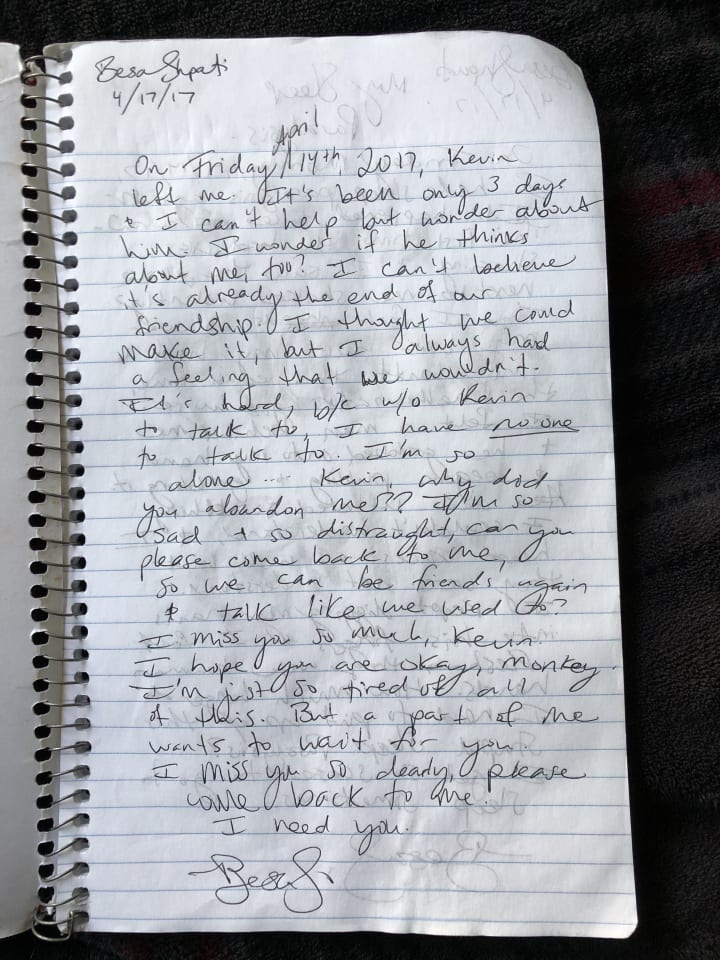 Besa Shpati
4/17/17
April
On Friday, 14th, 2017, Kevin
left me. It's been only 3 days
& I can't help but wonder about
him. I wonder if he thinks
about me, too? I can't believe
it's already the end of our
friendship. I thought we could
make it, but I always had
a feeling that we wouldn't.
It's hard, b/c w/o Kevin
to talk to, I have no one
to talk to. I'm so
alone... Kevin, why did
you abandon me?? I'm so
sad + so distraught, can you
please come back to me,
so we can be friends again
& talk like we used to?
I miss you so much, Kevin.
I hope you are okay, monkey.
I'm just so tired of all
of this. But a part of me
wants to wait for you.
I miss you so dearly, please
come back to me.
I need you.
Besa S.